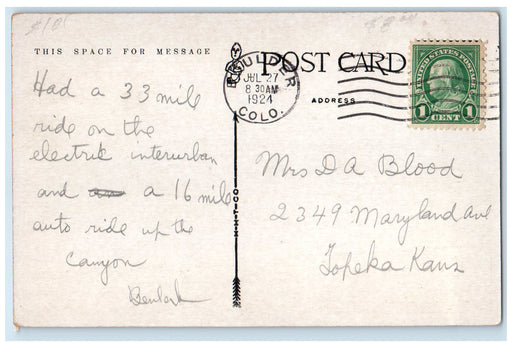 THIS SPACE FOR MESSAGE
POST CARD
ADDRESS
BOULDER
JUL 27
8 30AM
1924
COLO.
UNITED STATES POSTAGE
1 1
CENT
Had a 33 mile
ride on the
electric interurban
and a 16 mile
auto ride up the
canyon
Beulah
H-H-T-CO
Mrs D A Blood
2349 Maryland Ave
Topeka Kans